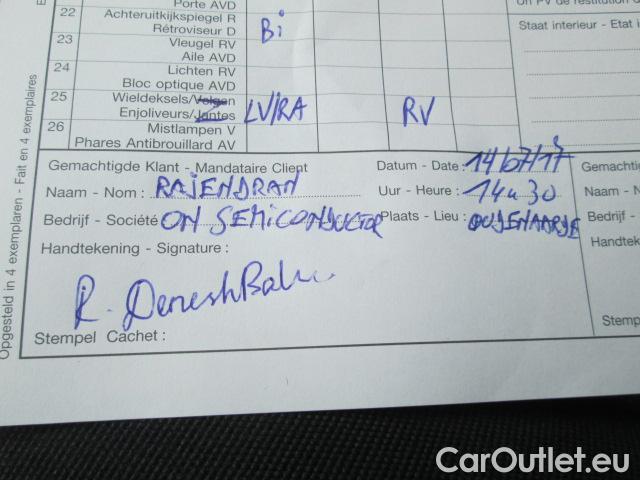 Porte AVD
On PV de restitution d
22 Achteruitkijkspiegel R
Rétroviseur D Bi
Staat interieur - Etat i
23 Vleugel RV
Aile AVD
24 Lichten RV
Bloc optique AVD
25 Wieldeksels/Velgen
Enjoliveurs/Jantes LV/RA RV
26 Mistlampen V
Phares Antibrouillard AV
Opgesteld in 4 exemplaren - Fait en 4 exemplaires
Gemachtigde Klant - Mandataire Client Datum - Date : 14/07/17 Gemachtig
Naam - Nom : RAJENDRAN Uur - Heure : 14u30 Naam - N
Bedrijf - Société ON SEMICONDUCTOR Plaats - Lieu : OUDENAARDE Bedrijf -
Handtekening - Signature : Handtek
R.
Stempel Cachet : Stemp
CarOutlet.eu